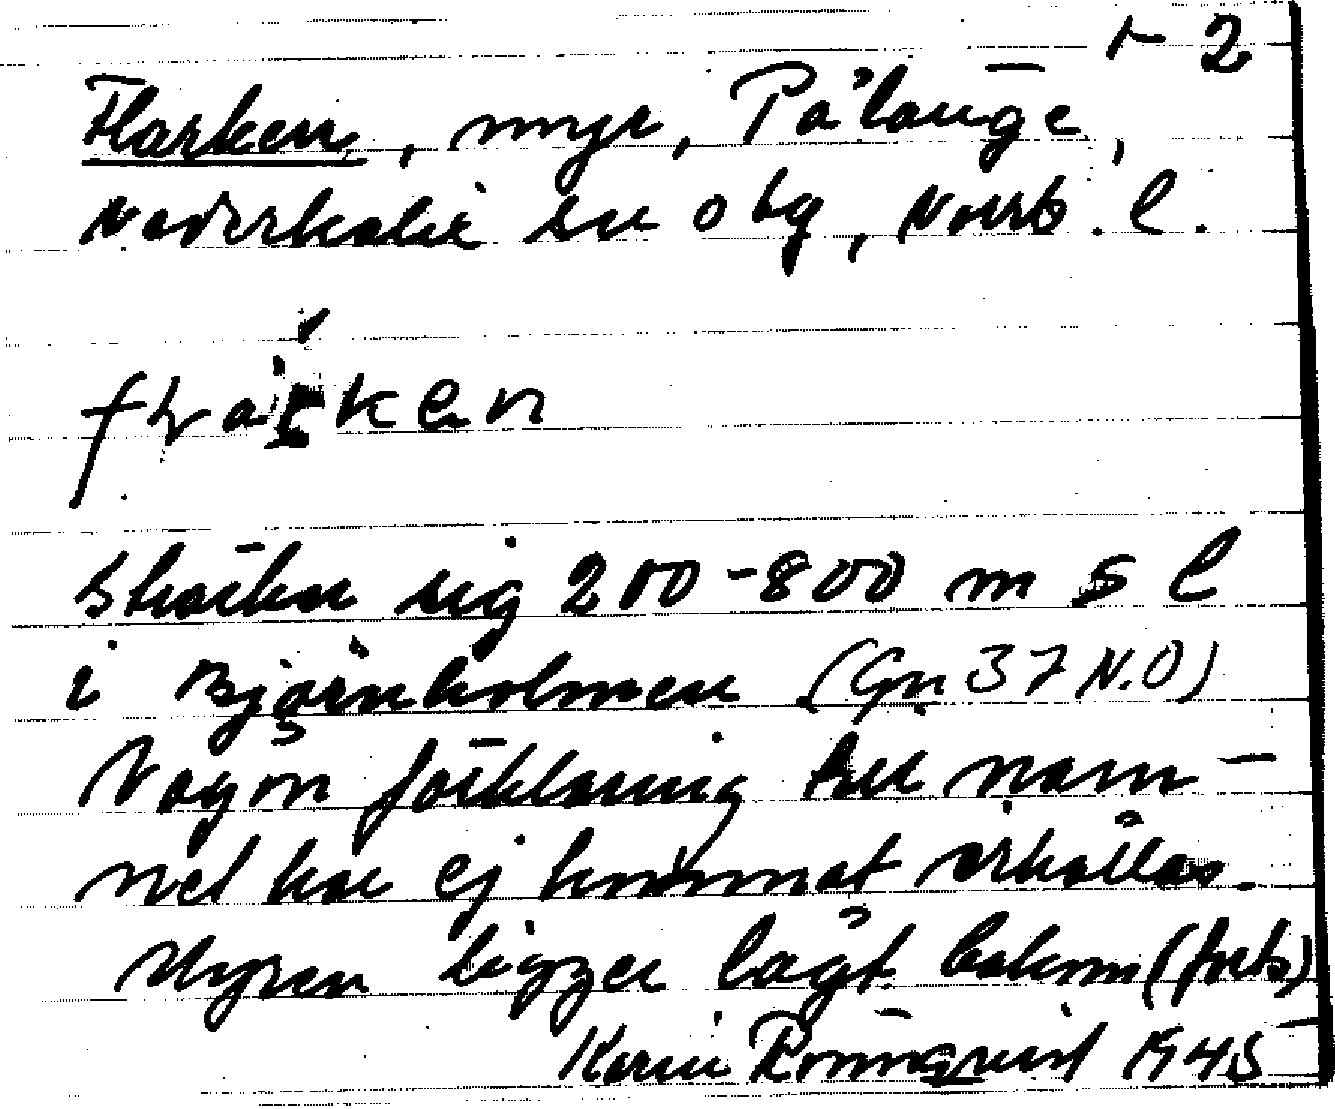 1-2
Flarken, myr, Pålänge,
Nederkalix sn o tg, Norrb. l.
flarken
Sträcker sig 200-800 m s l
i Björnholmen (Gn 37 N.O)
Någon förklaring till nam-
net har ej kunnat erhållas.
Myren ligger lågt bakom (forts)
Karin Rönnqvist 1945